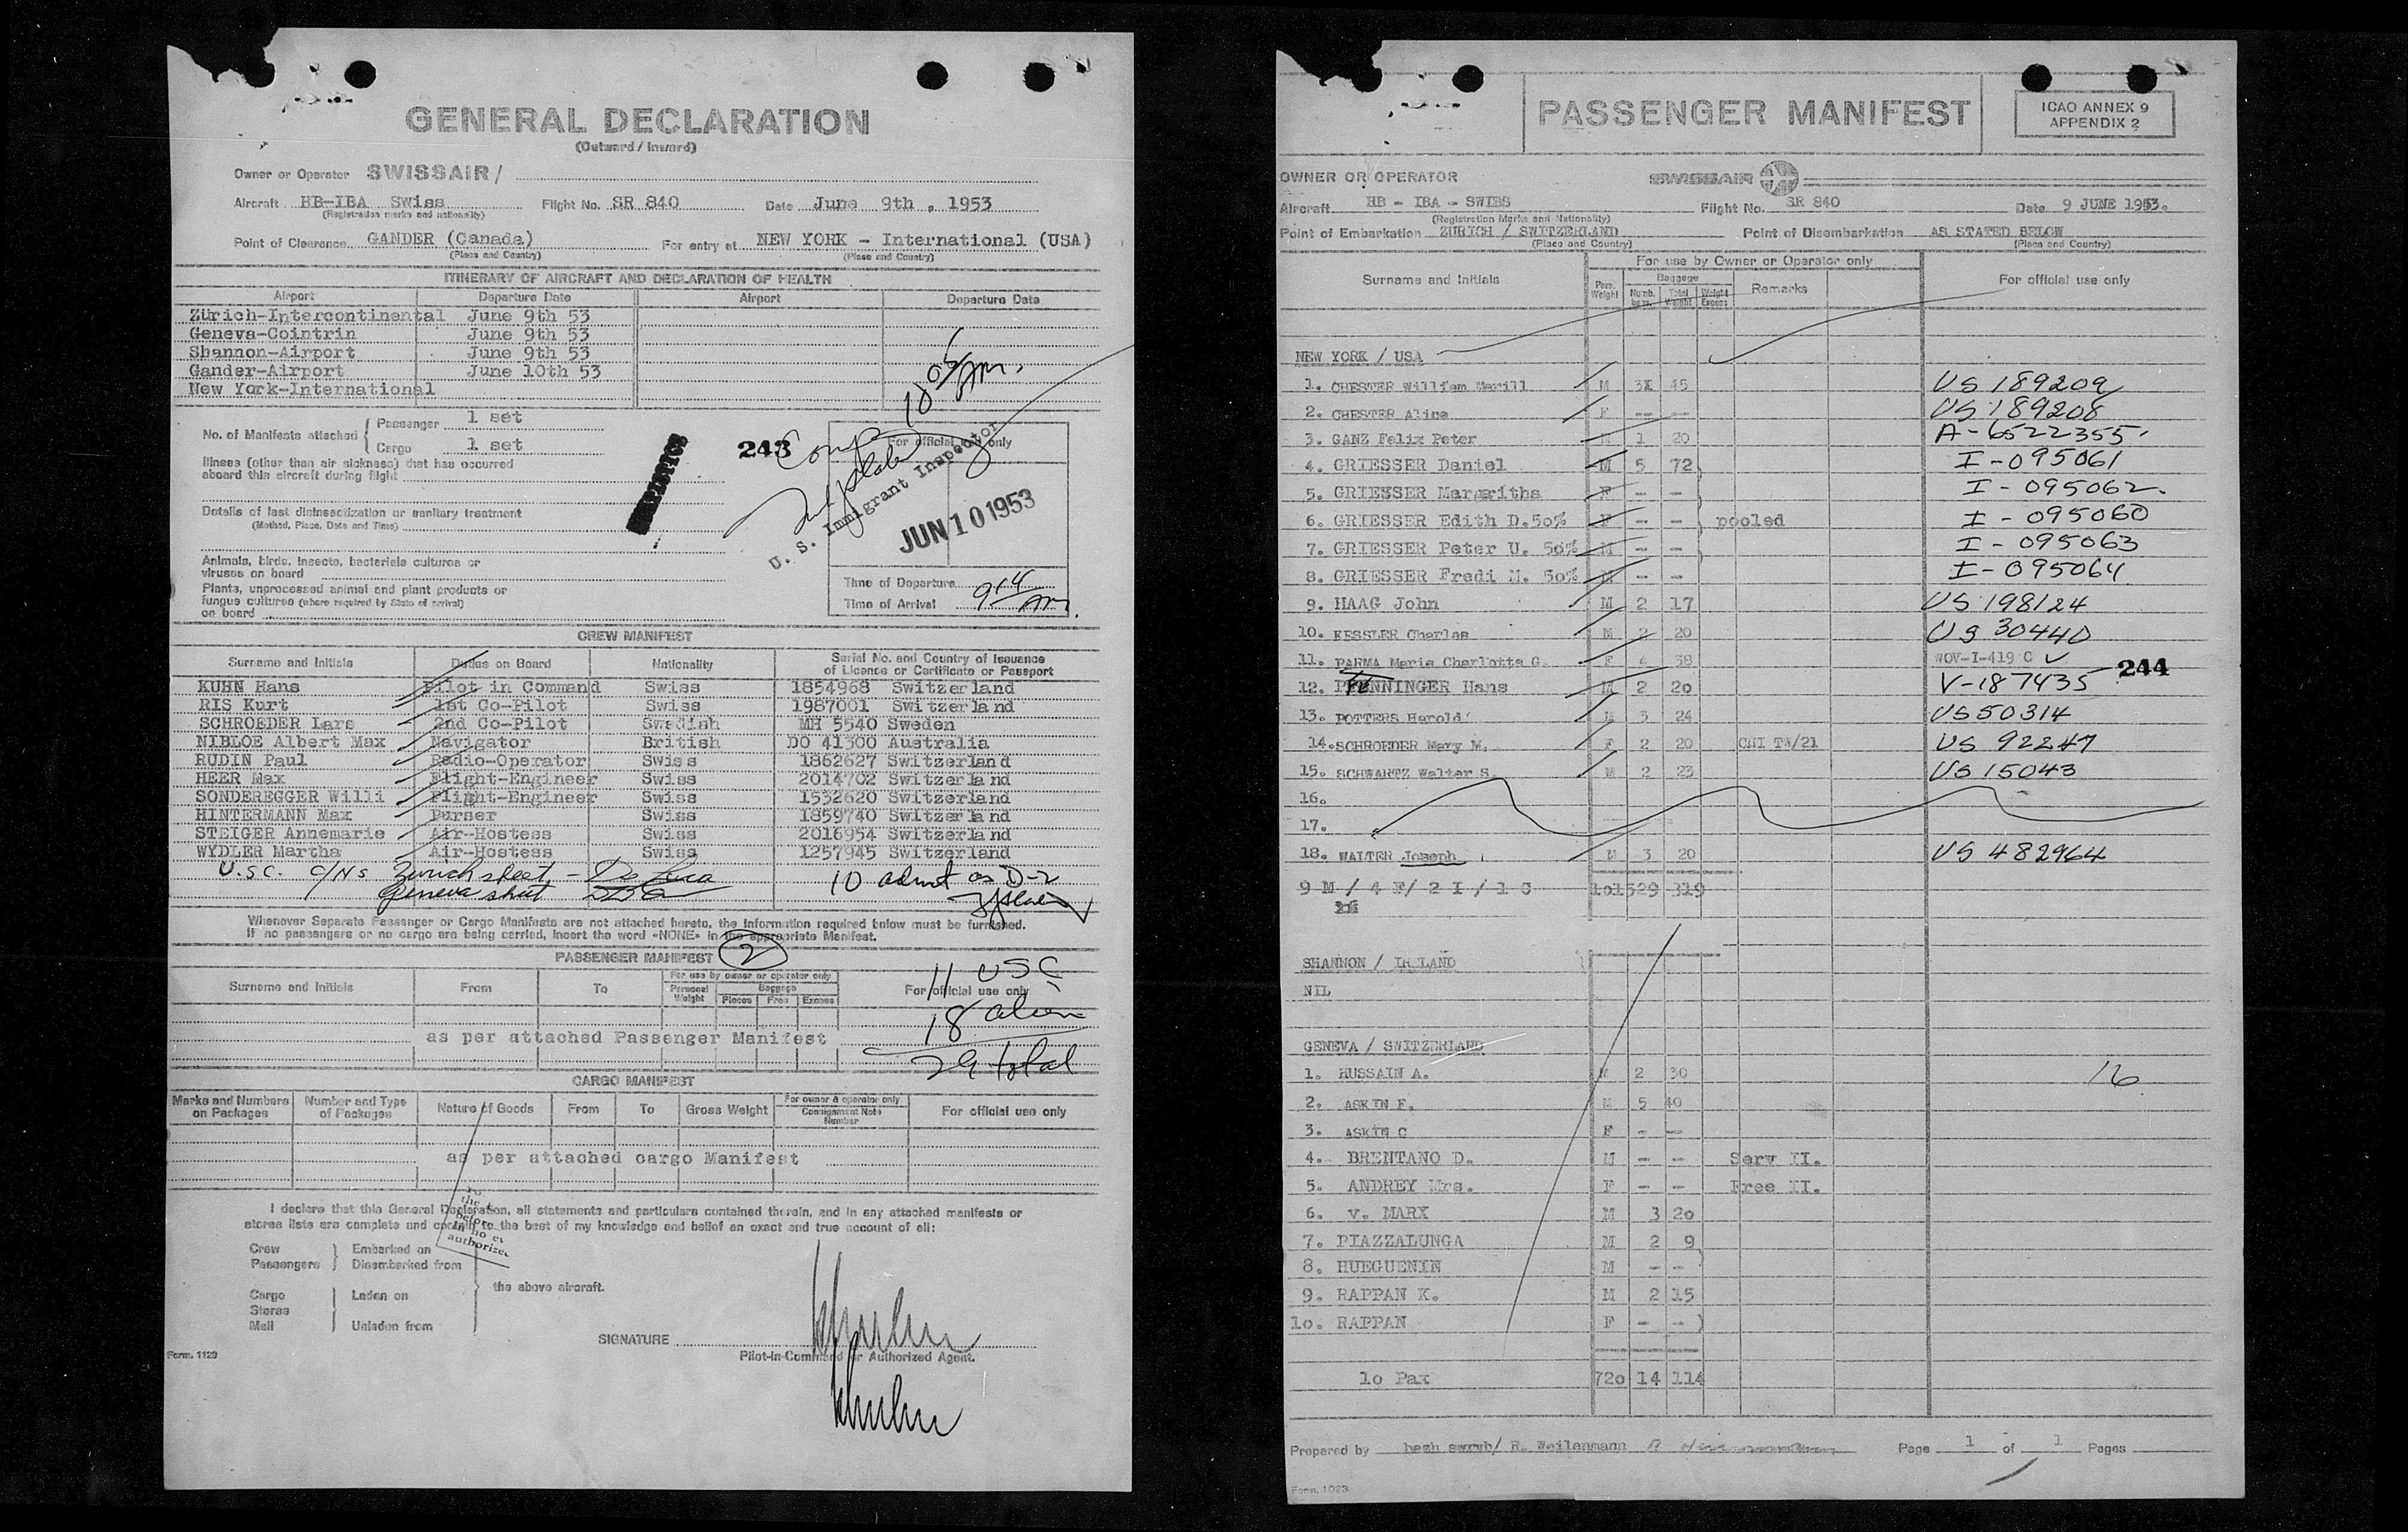 GENERAL DECLARATION
(Outward / Inward)
Owner or Operator SWISSAIR /
Aircraft HB-IBA Swiss Flight No. SR 840 Date June 9th, 1953
(Registration marks and nationality)
Point of Clearance GANDER (Canada) For entry at NEW YORK - International (USA)
(Place and Country) (Place and Country)
ITINERARY OF AIRCRAFT AND DECLARATION OF HEALTH
Airport Departure Date Airport Departure Date
Zürich-Intercontinental June 9th 53
Geneva-Cointrin June 9th 53
Shannon-Airport June 9th 53
Gander-Airport June 10th 53
New York-International
No. of Manifests attached
Passenger 1 set
Cargo 1 set
243
For official use only
Illness (other than air sickness) that has occurred
aboard this aircraft during flight
Details of last disinsectization or sanitary treatment
(Method, Place, Date and Time)
U. S. Immigrant Inspector
JUN 10 1953
Animals, birds, insects, bacteriale cultures or
viruses on board
Plants, unprocessed animal and plant products or
fungus cultures (where required by State of arrival)
on board
Time of Departure
Time of Arrival 9 14 AM.
CREW MANIFEST
Surname and Initials Duties on Board Nationality Serial No. and Country of Issuance
of Licence or Certificate or Passport
KUHN Hans Pilot in Command Swiss 1854968 Switzerland
RIS Kurt 1st Co-Pilot Swiss 1987001 Switzerland
SCHROEDER Lars 2nd Co-Pilot Swedish MH 5540 Sweden
NIBLOE Albert Max Navigator British DO 41300 Australia
RUDIN Paul Radio-Operator Swiss 1862627 Switzerland
HEER Max Flight-Engineer Swiss 2014702 Switzerland
SONDEREGGER Willi Flight-Engineer Swiss 1532620 Switzerland
HINTERMANN Max Purser Swiss 1859740 Switzerland
STEIGER Annemarie Air-Hostess Swiss 2016954 Switzerland
WYDLER Martha Air-Hostess Swiss 1257945 Switzerland
U.S.C. C/Ns Zurich sheet - 10 admit as D-2
Geneva sheet
Whenever Separate Passenger or Cargo Manifests are not attached hereto, the information required below must be furnished.
If no passengers or no cargo are being carried, insert the word «NONE» in the appropriate Manifest.
PASSENGER MANIFEST 2
Surname and Initials From To For use by owner or operator only For official use only
Personal Weight Baggage
Pieces Free Excess
11 USC
18 alien
29 total
as per attached Passenger Manifest
CARGO MANIFEST
Marks and Numbers on Packages Number and Type of Packages Nature of Goods From To Gross Weight For owner & operator only Consignment Note Number For official use only
as per attached cargo Manifest
I declare that this General Declaration, all statements and particulars contained therein, and in any attached manifests or
stores lists are complete and contain to the best of my knowledge and belief an exact and true account of all:
Crew Embarked on
Passengers Disembarked from
the above aircraft.
Cargo Laden on
Stores
Mail Unladen from
SIGNATURE
Pilot-in-Command or Authorized Agent.
Form. 1129
PASSENGER MANIFEST
ICAO ANNEX 9
APPENDIX 2
OWNER OR OPERATOR SWISSAIR
Aircraft HB - IBA - SWISS Flight No. SR 840 Date 9 JUNE 1953.
(Registration Marks and Nationality)
Point of Embarkation ZURICH / SWITZERLAND Point of Disembarkation AS STATED BELOW
(Place and Country) (Place and Country)
Surname and Initials For use by Owner or Operator only For official use only
Pers. Weight Baggage Remarks
Numb. Total Weight Weight Excess
NEW YORK / USA
1. CHESTER William Merill M 3X 45 US 189209
2. CHESTER Alice F -- -- US 189208
3. GANZ Felix Peter M 1 20 A-6522355
4. GRIESSER Daniel M 5 72 I-095061
5. GRIESSER Margritha F - - I-095062.
6. GRIESSER Edith D.50% F - - pooled I-095060
7. GRIESSER Peter U. 50% M - - I-095063
8. GRIESSER Fredi M. 50% M - - I-095064
9. HAAG John M 2 17 US 198124
10. KESSLER Charles M 2 20 US 30440
11. PARMA Maria Charlotta G. F 4 38 WOV-I-419 C
244
12. PFENNINGER Hans M 2 20 V-187435
13. POTTERS Harold M 3 24 US 50314
14. SCHROEDER Mary M. F 2 20 CHI TW/21 US 92247
15. SCHWARTZ Walter S. M 2 23 US 15043
16.
17.
18. WALTER Joseph M 3 20 US 482964
9 M / 4 F/ 2 I / 1 C 1015 29 319
SHANNON / IRELAND
NIL
GENEVA / SWITZERLAND
1. HUSSAIN A. M 2 30 16
2. ASKIN F. M 5 40
3. ASKIN C F - --
4. BRENTANO D. M - - Serv II.
5. ANDREY Mrs. F - - Free II.
6. v. MARX M 3 20
7. PIAZZALUNGA M 2 9
8. HUEGUENIN M - -
9. RAPPAN K. M 2 15
10. RAPPAN F - -
10 Pax 720 14 114
Prepared by hezh swrwb/ R. Weilenmann Page 1 of 1 Pages
Form. 1023